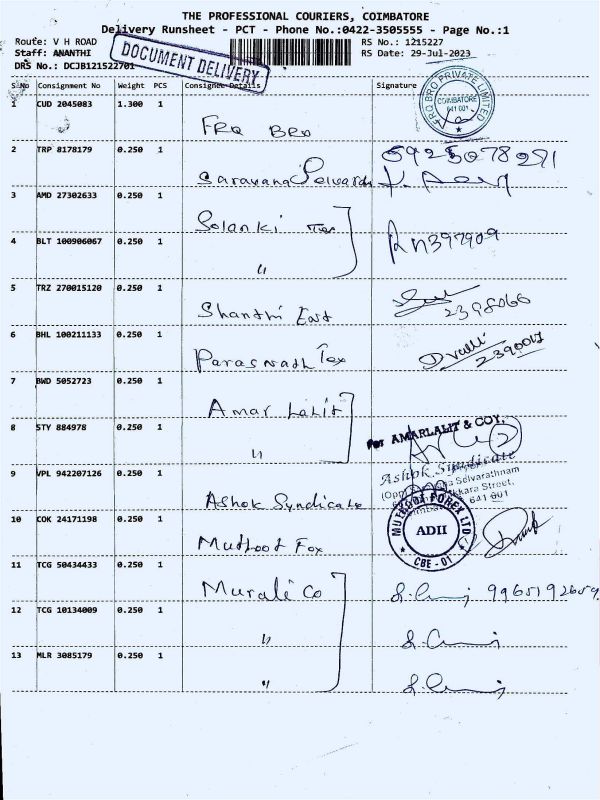 THE PROFESSIONAL COURIERS, COIMBATORE
Delivery Runsheet - PCT - Phone No.:0422-3505555 - Page No.:1
Route: V H ROAD RS No.: 1215227
Staff: ANANTHI RS Date: 29-Jul-2023
DRS No.: DCJB121522701
DOCUMENT DELIVERY
S.No Consignment No Weight PCS Consignee Details Signature
1 CUD 2045083 1.300 1 FRQ BRO
BRO PRIVATE LIMITED
COIMBATORE
641 001
2 TRP 8178179 0.250 1 Saravana Selvarth
3 AMD 27302633 0.250 1 Solanki Tex
4 BLT 100906067 0.250 1 " Rn397909
5 TRZ 270015120 0.250 1 Shanthi East 2398066
6 BHL 100211133 0.250 1 Parasnath Tex D valli
7 BWD 5052723 0.250 1 Amar Lalit
8 STY 884978 0.250 1 " For AMARLALIT & COY.
9 VPL 942207126 0.250 1 Ashok Syndicate Ashok Syndicate
Selvarathnam
kkara Street,
641 001
10 COK 24171198 0.250 1 Muthoot Fox
MUTHOOT FOREX LTD
ADII
CBE - 01
11 TCG 50434433 0.250 1 Murali Co 9965192659
12 TCG 10134009 0.250 1 "
13 MLR 3085179 0.250 1 "